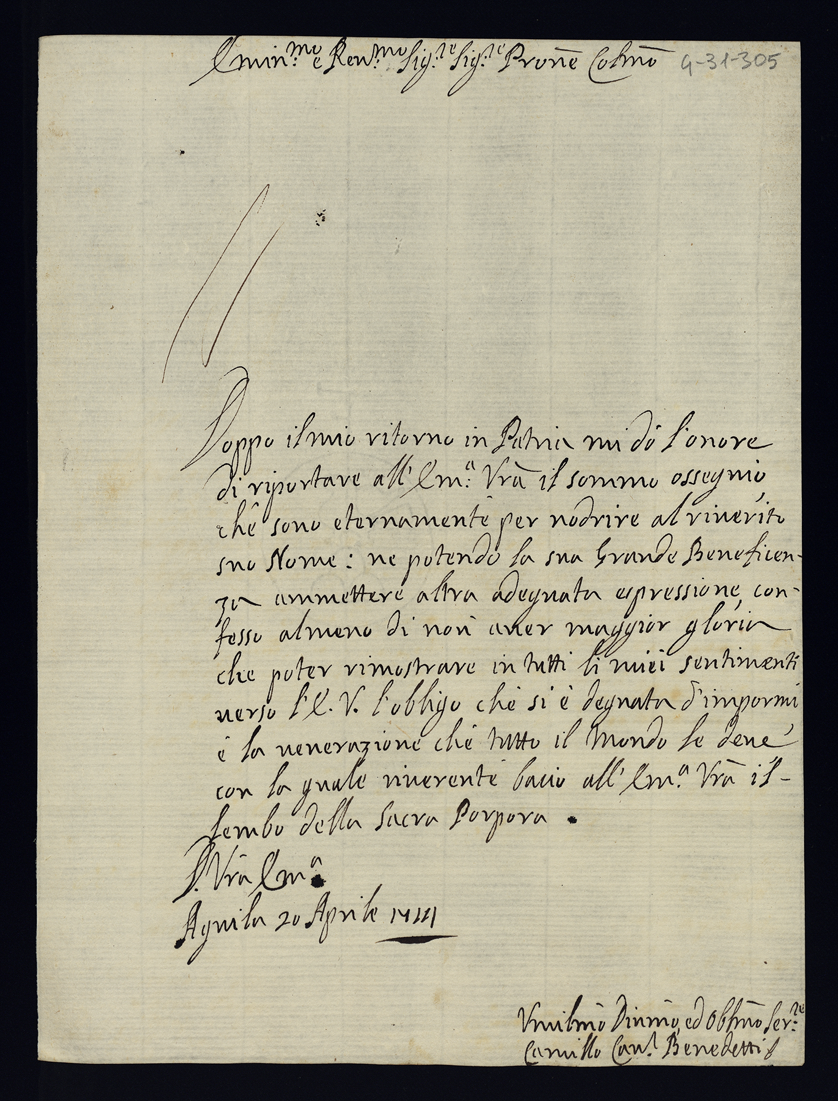 Emin.mo e Rev.mo Sig.re Sig.re Prone Colmo
G-31-305
Doppo il mio ritorno in Patria mi dò l'onore
di riportare all' Em.a Vrã il sommo ossequio,
chè sono eternamente per nodrire al riverito
suo Nome: ne potendo la sua Grande Beneficen-
za ammettere altra adequata espressione, con-
fesso almeno di non aver maggior gloria
che poter rimostrare in tutti li miei sentimenti
verso l'E. V. l'obbligo chè si è degnata d'impormi
è la venerazione chè tutto il Mondo le deve
con la quale riverente bacio all' Em.a Vrã il-
lembo della Sacra Porpora.
D. Vrã Em.a
Aquila 20 Aprile
Umilmõ Divmõ, ed Obblmõ Ser.re
Camillo Can.l Benedetti